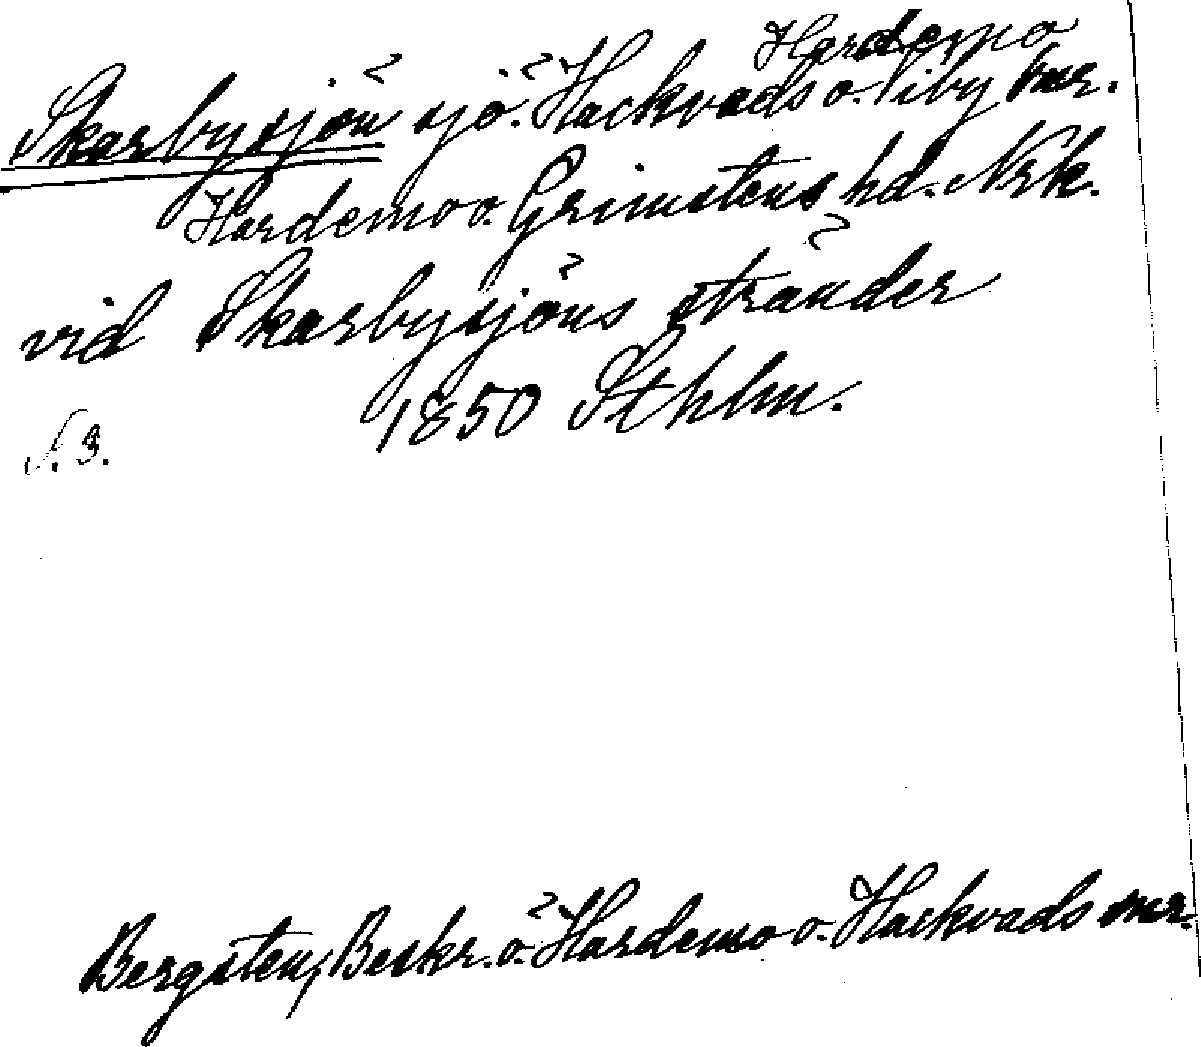 Hardemo
Skarbysjön sjö. Hackvads o. Viby snr.
Hardemo o. Grimstens hd. Nrk.
vid Skarbysjöns stränder
1850 Sthlm.
S. 3.
Bergsten, Beskr. ö. Hardemo o. Hackvads snr.